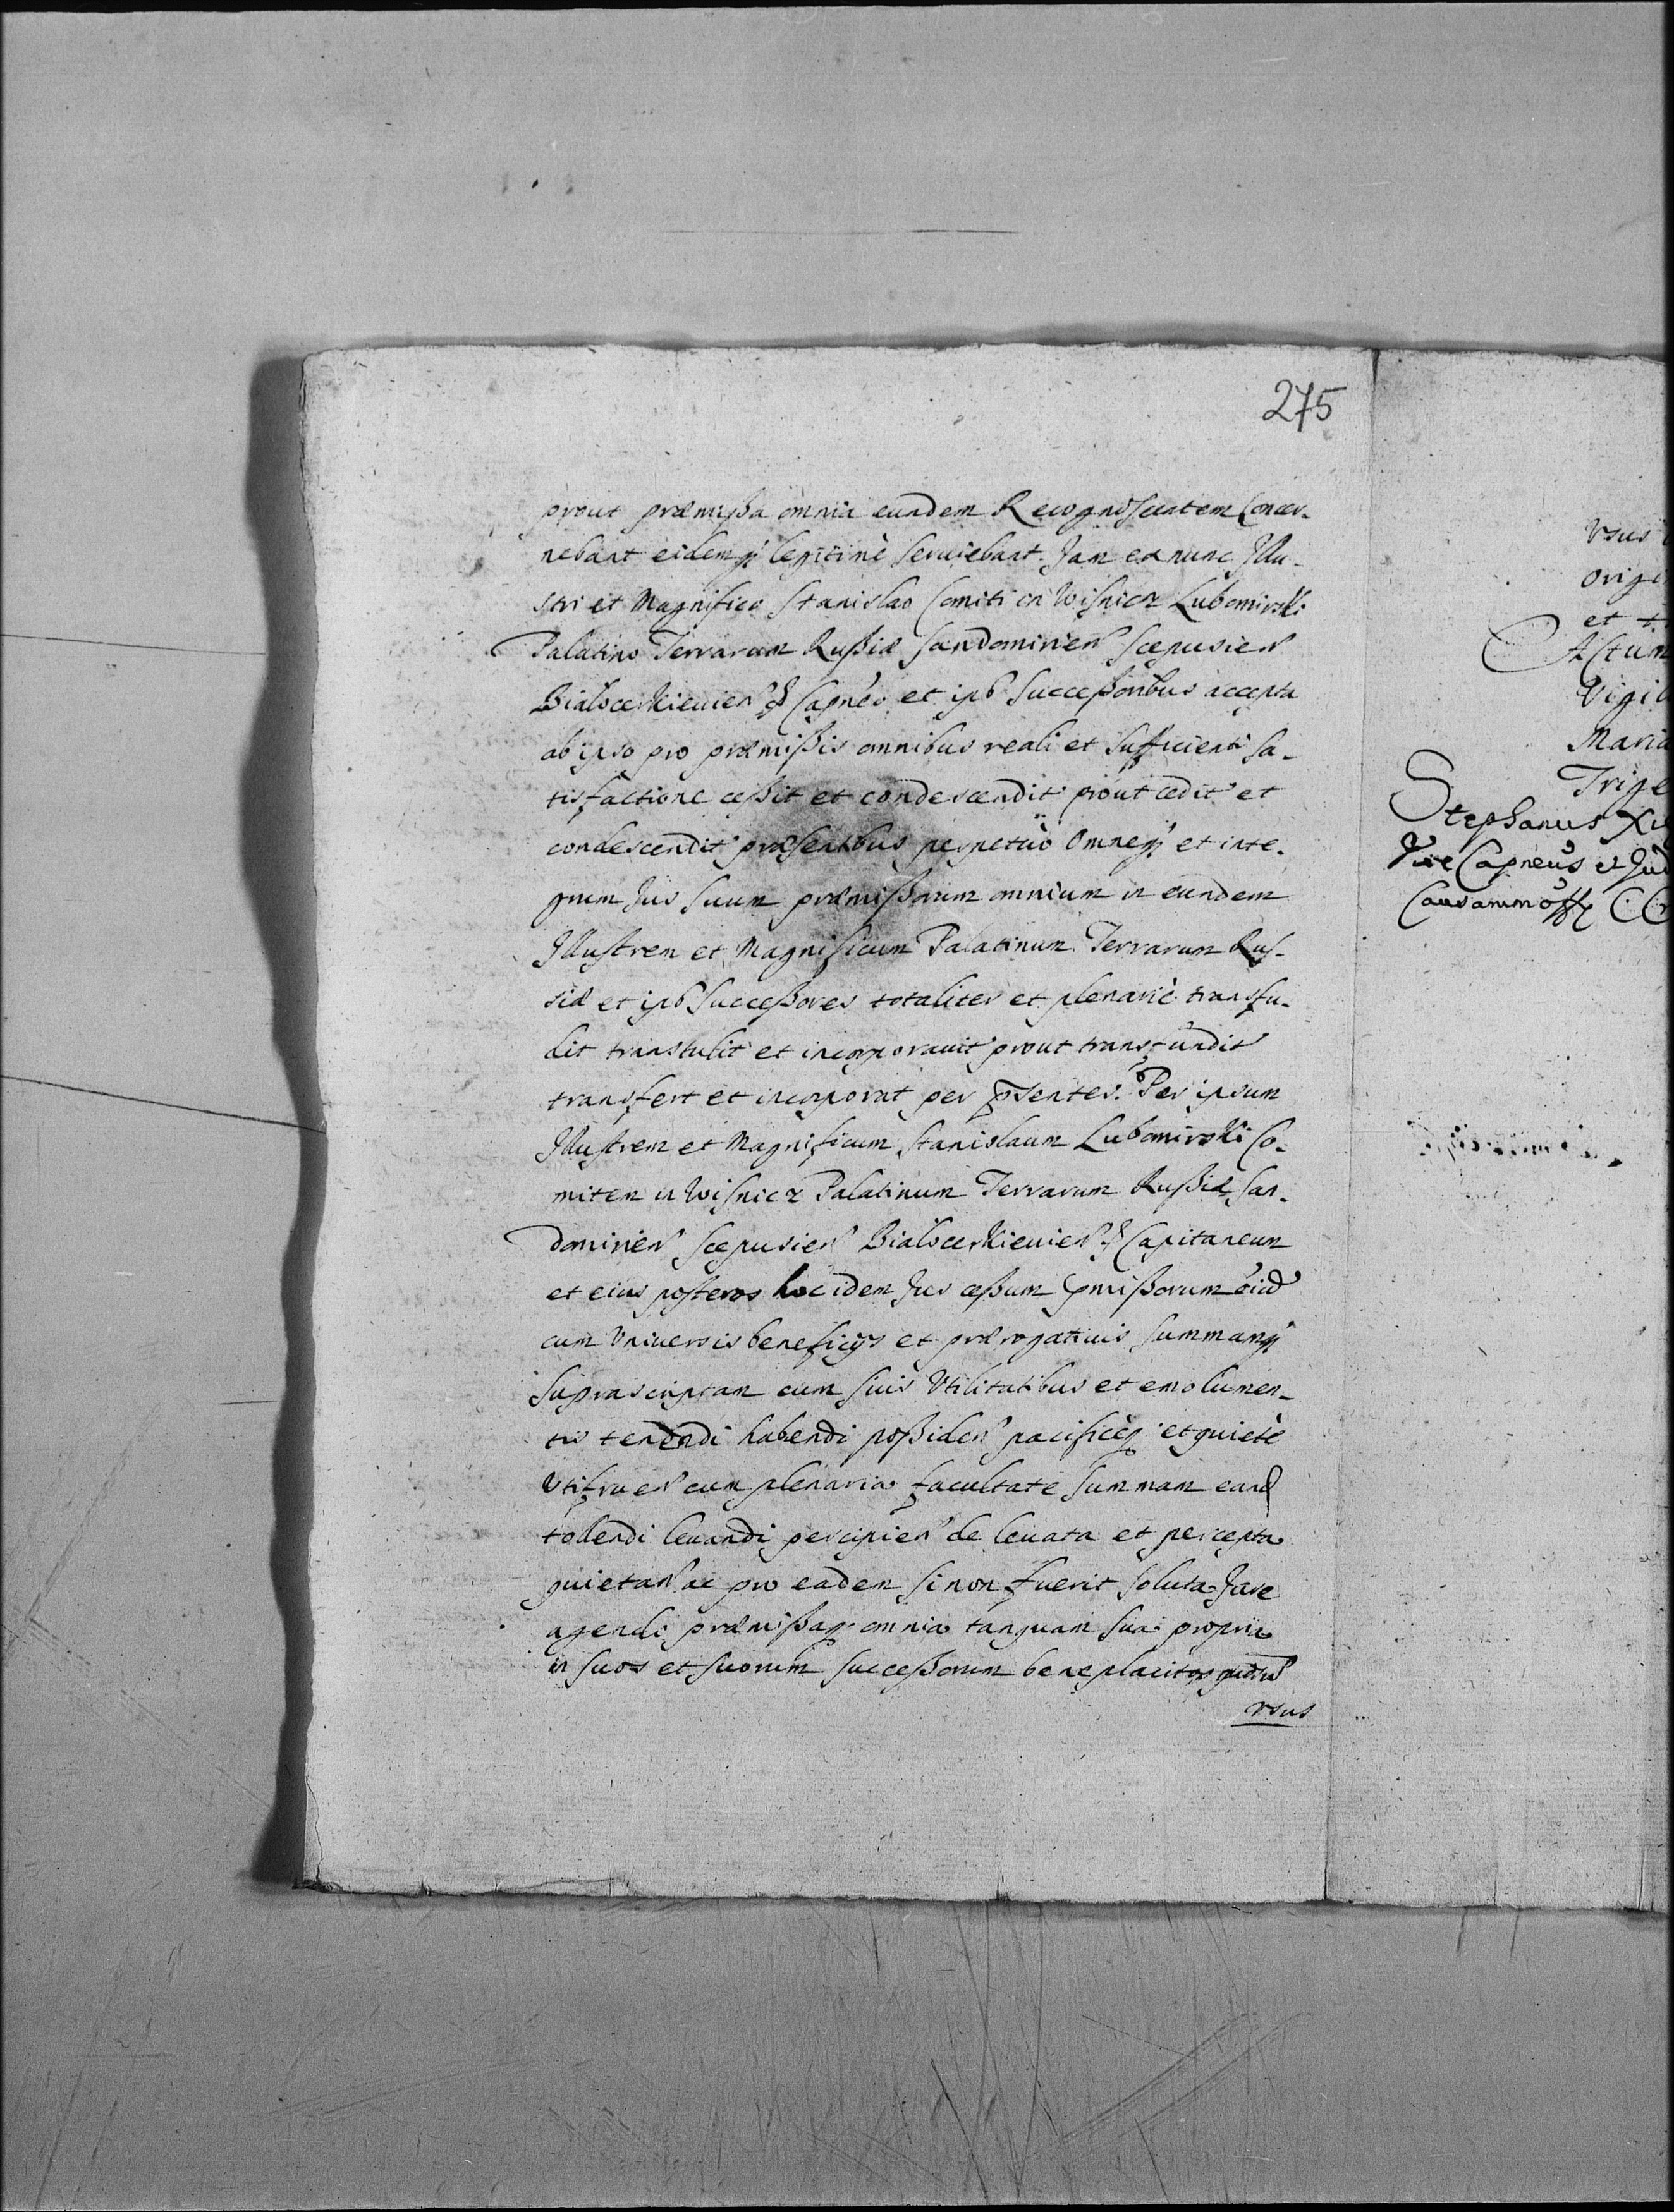 275
prout præmissa omnia eundem Recognoscentem Concer-
nebant eidemq legitimè seruiebant. Jam ex nunc Jllu-
stri et Magnifico Stanislao Comiti in Wisnicz Lubomirski
Palatino Terrarum Russiæ Sandomirien Scepusien
Bialocerkieuien & Capneo et ips Successoribus accepta
ab ipso pro præmissis omnibus reali et sufficienti sa-
tisfactione cessit et condescendit prout cedit et
condescendit præsentibus perpetuò Omneq et inte-
grum Jus suum præmissorum omnium in eundem
Jllustrem et Magnificum Palatinum Terrarum Rus-
siæ et ips Successores totaliter et plenariè transfu-
dit transtulit et incorporauit prout transfundit
transfert et incorporat per pntes. Per ipsum
Jllustrem et Magnificum Stanislaum Lubomirski Co-
mitem in Wisnicz Palatinum Terrarum Russiæ San-
domirien Scepusien Bialocerkieuien & Capitaneum
et eius posteros hoc idem Jus cessum pmissorum
cum Vniuersis beneficijs et prærogatiuis Summamq
suprascriptam cum suis Vtilitatibus et emolumen-
tis tenendi habendi possiden pacificeq et quietè
Vtifruen cum plenaria facultate Summam eand
tollendi leuandi percipien de leuata et percepta
quietan ac pro eadem si non fuerit soluta Jure
agendi præmissaq omnia tanquam sua propria
in suos et suorum successorum beneplacitos
vsus
Vsus
Origi
et
Actum
Vigil
Maria
Trige
Stephanus
Vice Capneus et Jud
Causarum off C C